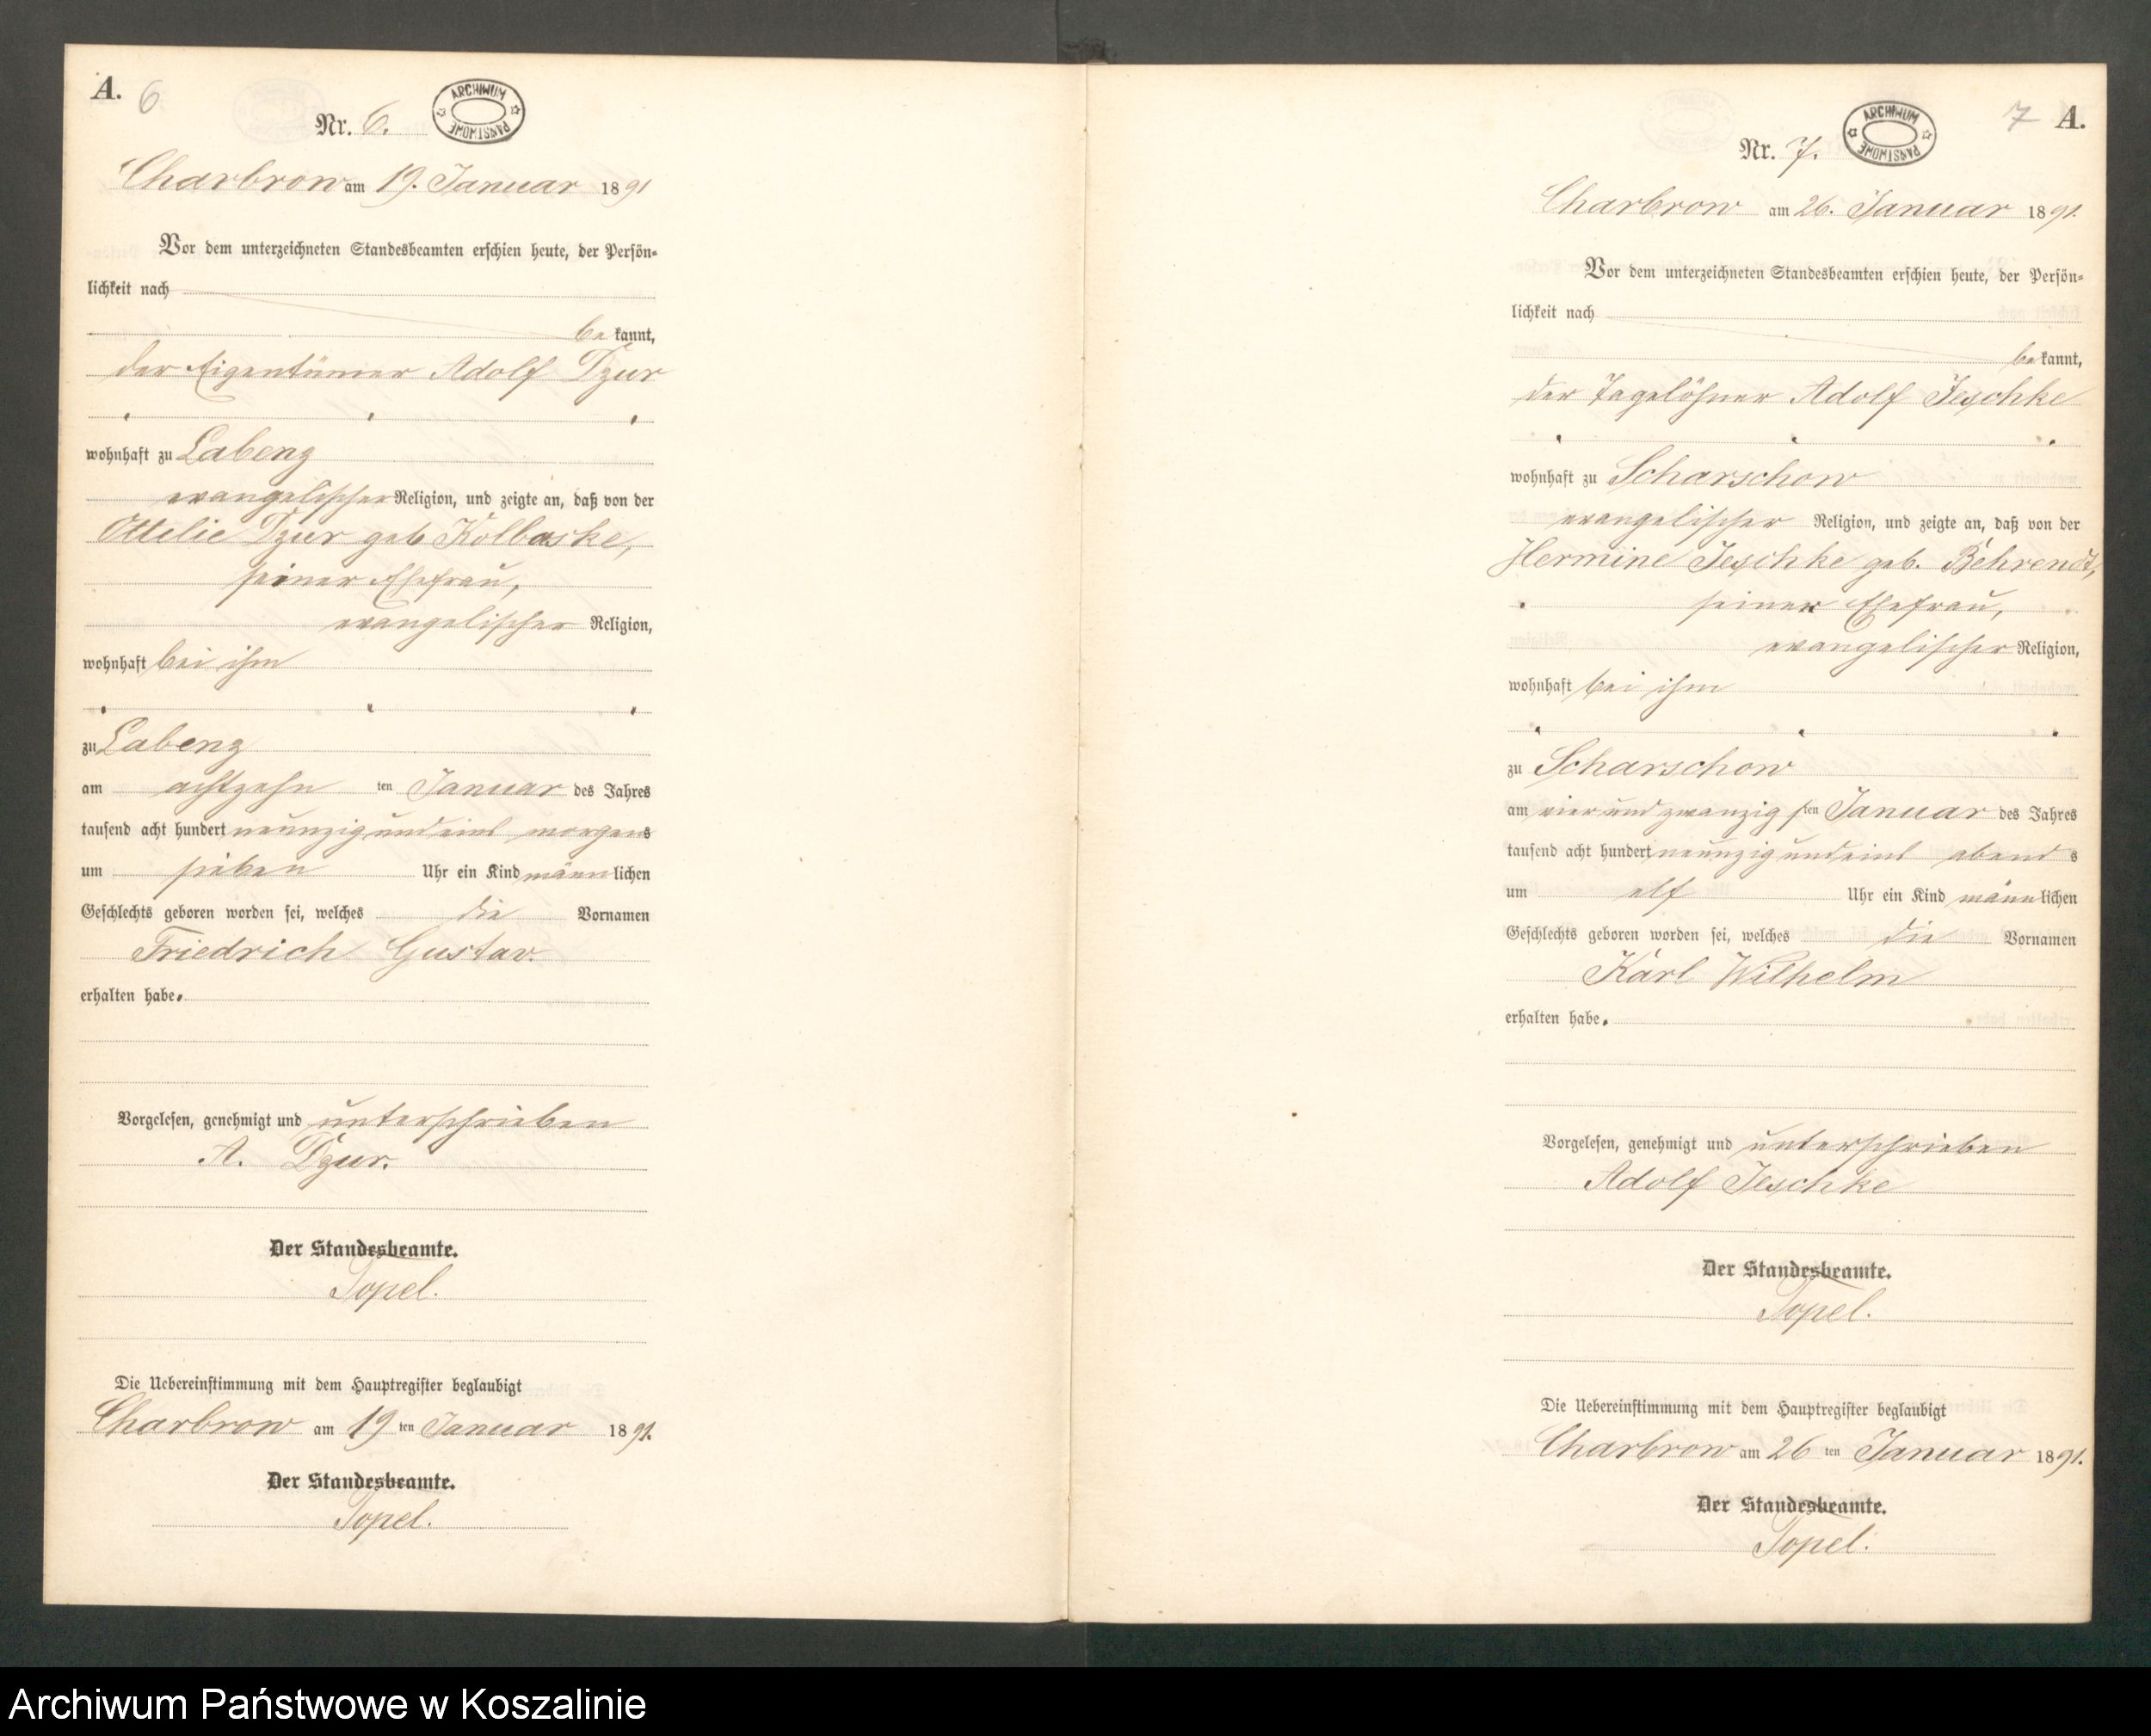 A. 6
Nr. 6.
ARCHIWUM PAŃSTWOWE
Charbrow am 19. Januar 1891
Vor dem unterzeichneten Standesbeamten erschien heute, der Persön-
lichkeit nach
be kannt,
der Eigentümer Adolf Dzur
wohnhaft zu Labenz
evangelischer Religion, und zeigte an, daß von der
Ottelie Dzur geb Kolbaske,
seiner Ehefrau,
evangelischer Religion,
wohnhaft bei ihm
zu Labenz
am achtzehn ten Januar des Jahres
tausend acht hundert neunzig und eins morgens
um sieben Uhr ein Kind männlichen
Geschlechts geboren worden sei, welches die Vornamen
Friedrich Gustav.
erhalten habe.
Vorgelesen, genehmigt und unterschrieben
A. Dzur.
Der Standesbeamte.
Topel.
Die Uebereinstimmung mit dem Hauptregister beglaubigt
Charbrow am 19 ten Januar 1891.
Der Standesbeamte.
Topel.
7 A.
Nr. 7.
ARCHIWUM PAŃSTWOWE
Charbrow am 26. Januar 1891.
Vor dem unterzeichneten Standesbeamten erschien heute, der Persön-
lichkeit nach
be kannt,
der Tagelöhner Adolf Jeschke
wohnhaft zu Scharschow
evangelischer Religion, und zeigte an, daß von der
Hermine Jeschke geb. Behrendt,
seiner Ehefrau,
evangelischer Religion,
wohnhaft bei ihm
zu Scharschow
am vier und zwanzig sten Januar des Jahres
tausend acht hundert neunzig und eins abend s
um elf Uhr ein Kind männlichen
Geschlechts geboren worden sei, welches die Vornamen
Karl Wilhelm
erhalten habe.
Vorgelesen, genehmigt und unterschrieben
Adolf Jeschke
Der Standesbeamte.
Topel.
Die Uebereinstimmung mit dem Hauptregister beglaubigt
Charbrow am 26 ten Januar 1891.
Der Standesbeamte.
Topel.
Archiwum Państwowe w Koszalinie